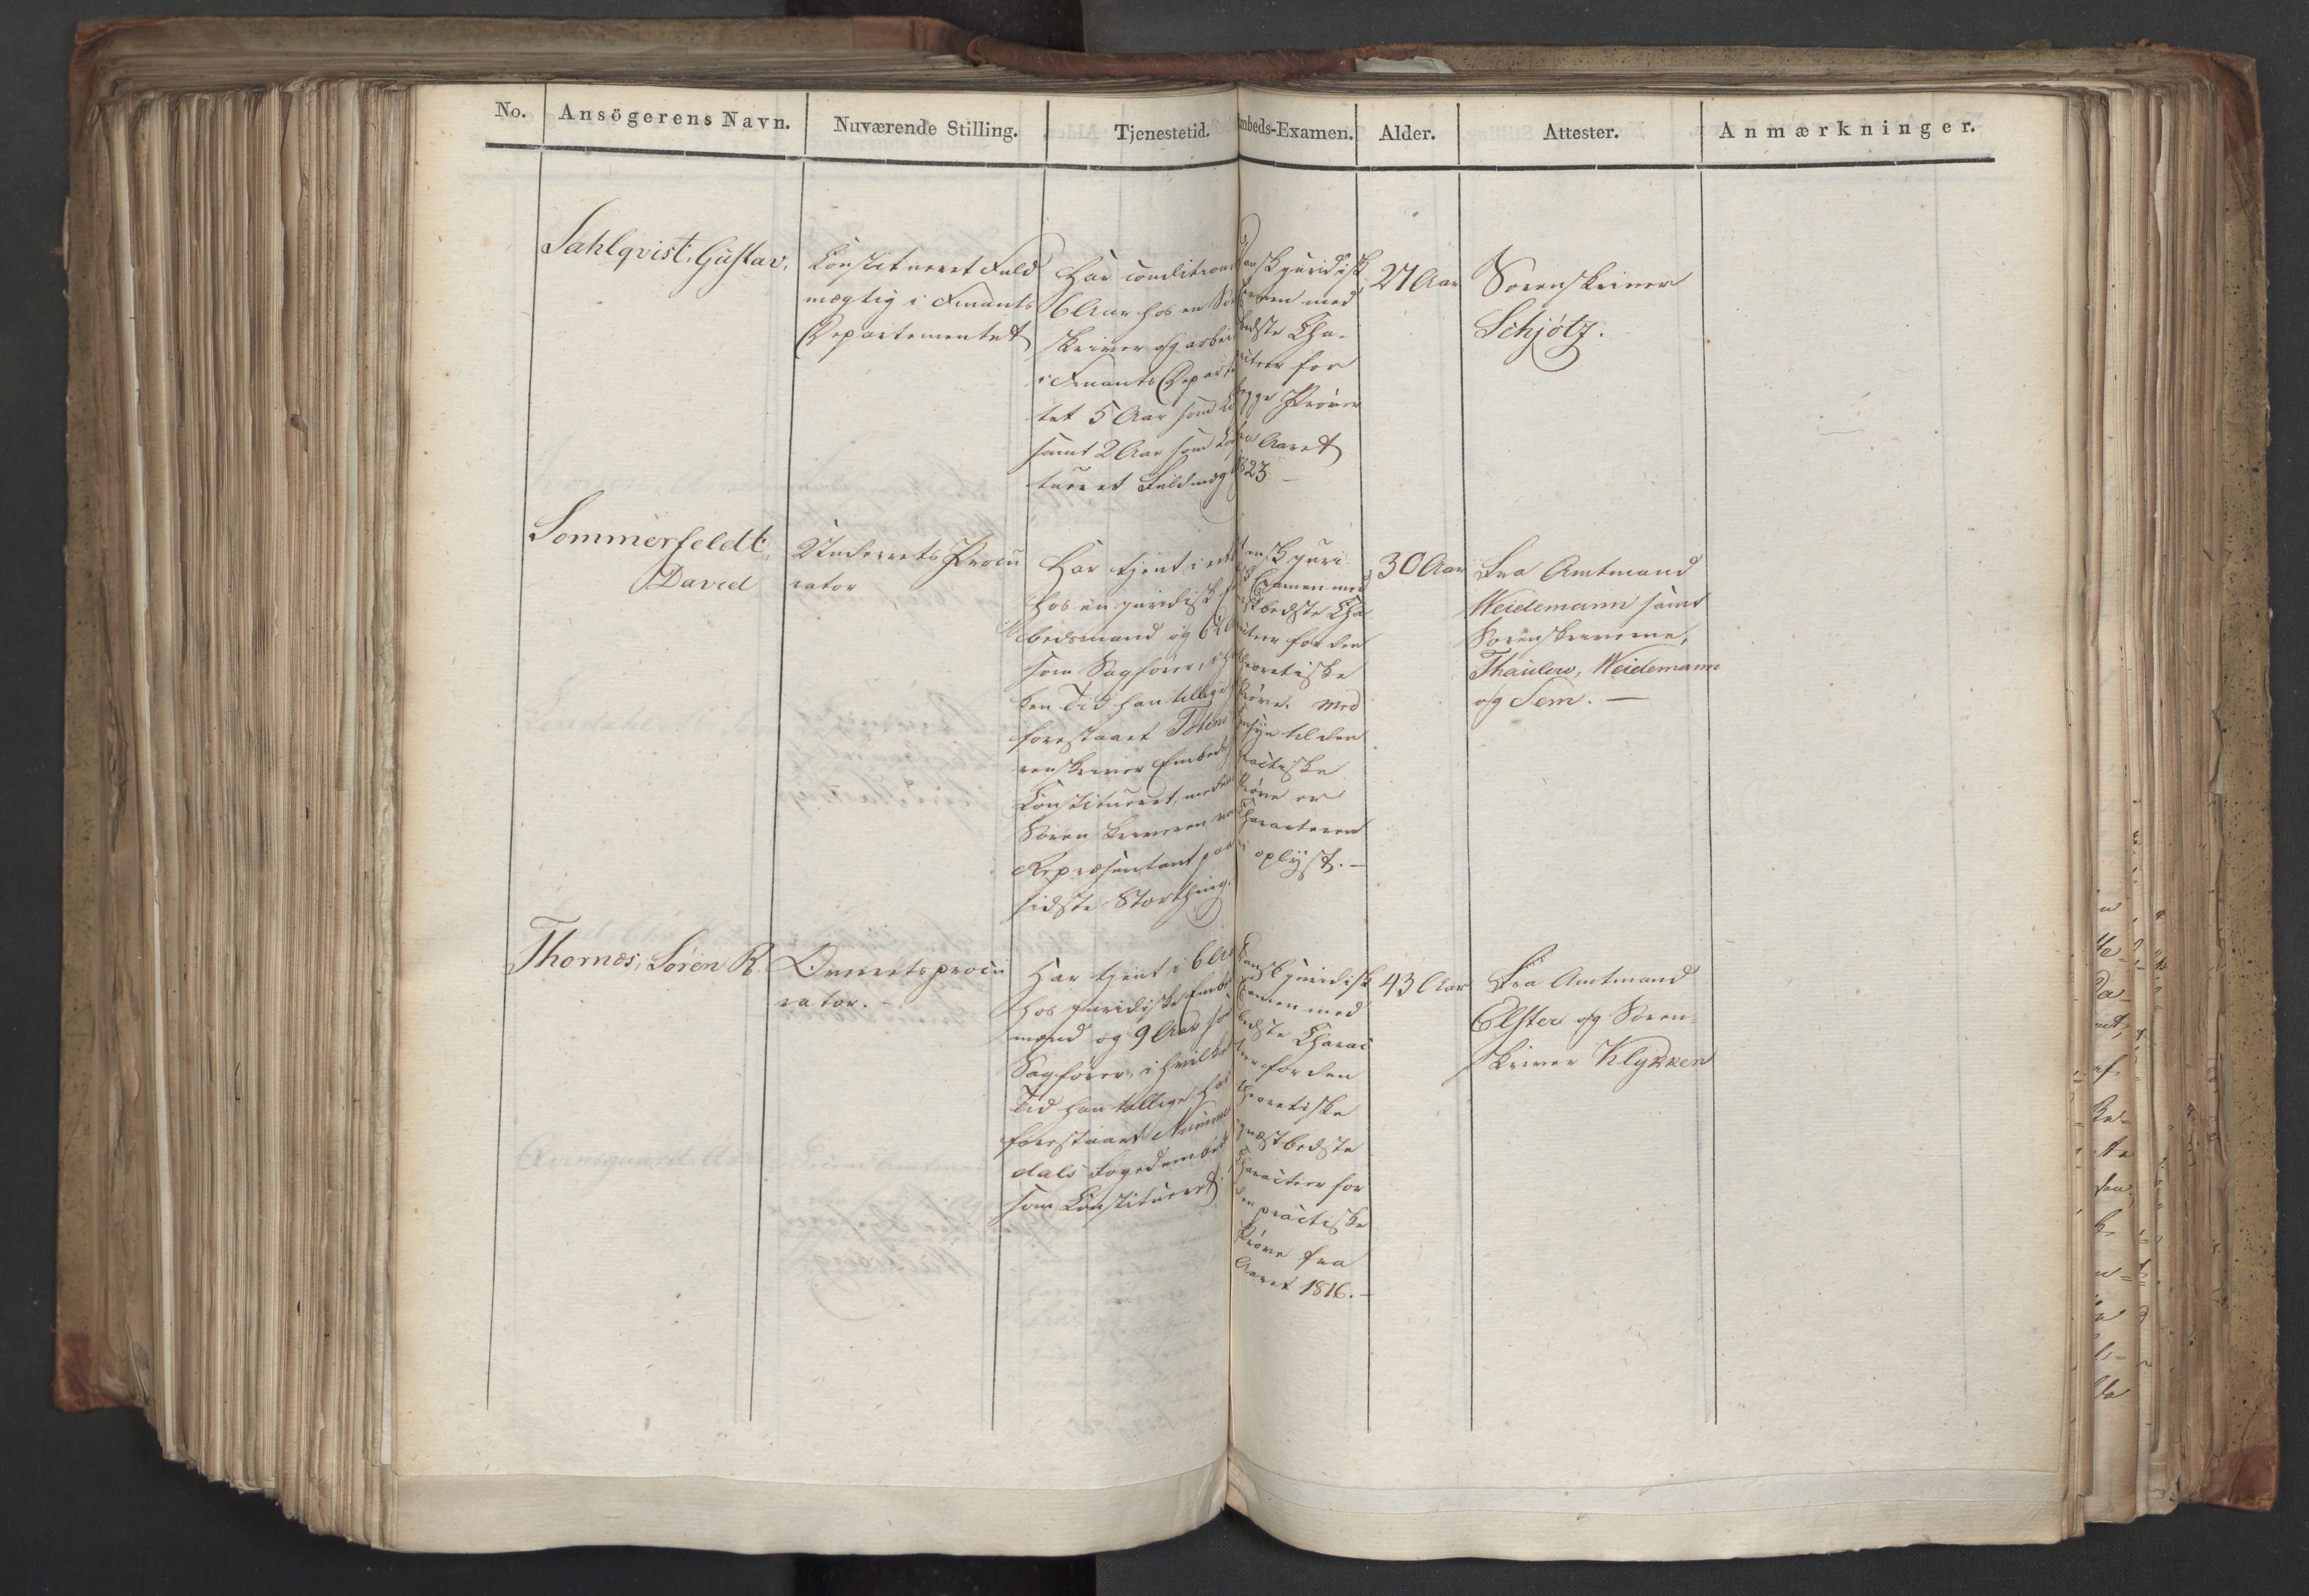 No. Ansögerens Navn. Nuværende Stilling. Tjenestetid. mbeds-Examen. Alder. Attester. Anmærkninger.
Sahlqvist, Gustav,
Constitueret Fuld
mægtig i Finants
Departementet
Har conditione
6 Aar hos en So
skriver og arbei
i Finants Departe
tet 5 Aar som
samt 2 Aar som Co
tueret Fuldmægt
Dansk juridisk
Examen med
bedste Cha-
racteer for
begge Prøver
fra Aaret
1823 -
27 Aar
Sorenskriver
Schjötz.
Sommerfeldt,
David
Underrets Procu
rator
Har tjent i et
hos en juridisk
bedsmand og 6
som Sagfører, i
ken Tid han tillige
forestaaet Totens
renskriver Embede
Constitueret, medens
Sorenskriveren var
Repræsentant paa
sidste Storthing.
Dansk juri
Examen med
bedste Cha
racteer for den
theoretiske
Prøve. Med
Hensyn til den
practiske
Prøve er
Characteren
ei oplyst. -
30 Aar
Fra Amtmand
Weidemann samt
Sorenskriverne,
Thaulow, Weidemann
og Sem. -
Thornæs, Sören R.
Overretsprocu
rator. -
Har tjent i 6 Aar
hos juridiske Embe
mænd og 9 Aar som
Sagfører, i hvilken
Tid han tillige har
forestaaet Numme
dals Fogedembede
som Constitueret.
Dansk juridisk
Examen med
bedste Charac
teer for den
theoretiske
og næstbedste
Characteer for
den practiske
Prøve fra
Aaret 1816. -
43 Aar
Fra Amtmand
Elster og Soren-
skriver Klykken